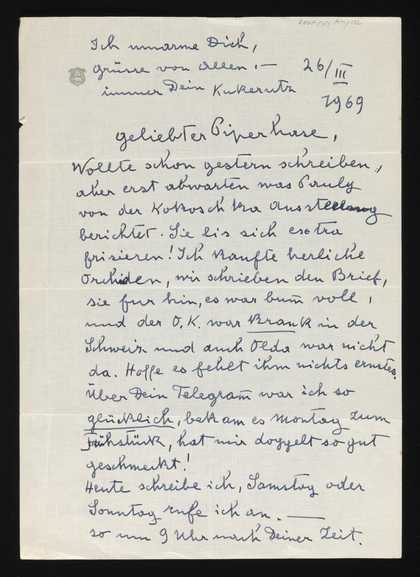 Ich umarme Dich,
Grüsse von Allen.—
immer Dein Kukerutz
26/III
1969
Geliebter Piperhase,
Wollte schon gestern schreiben,
aber erst abwarten was Pauly
von der Kokoschka Ausstellung
berichtet. Sie lis sich extra
frisieren! Ich kaufte herliche
Orchiden, wir schrieben den Brief,
sie fur hin, es war bum voll,
und der O.K. war Krank in der
Schweiz und auch Olda war nicht
da. Hoffe es fehlt ihm nichts ernstes.
Über Dein Telegram war ich so
glücklich, bekam es Montag zum
Frühstück, hat mir doppelt so gut
geschmekt!
Heute schreibe ich, Samstag oder
Sonntag rufe ich an. —
so um 9 Uhr nach Deiner Zeit.